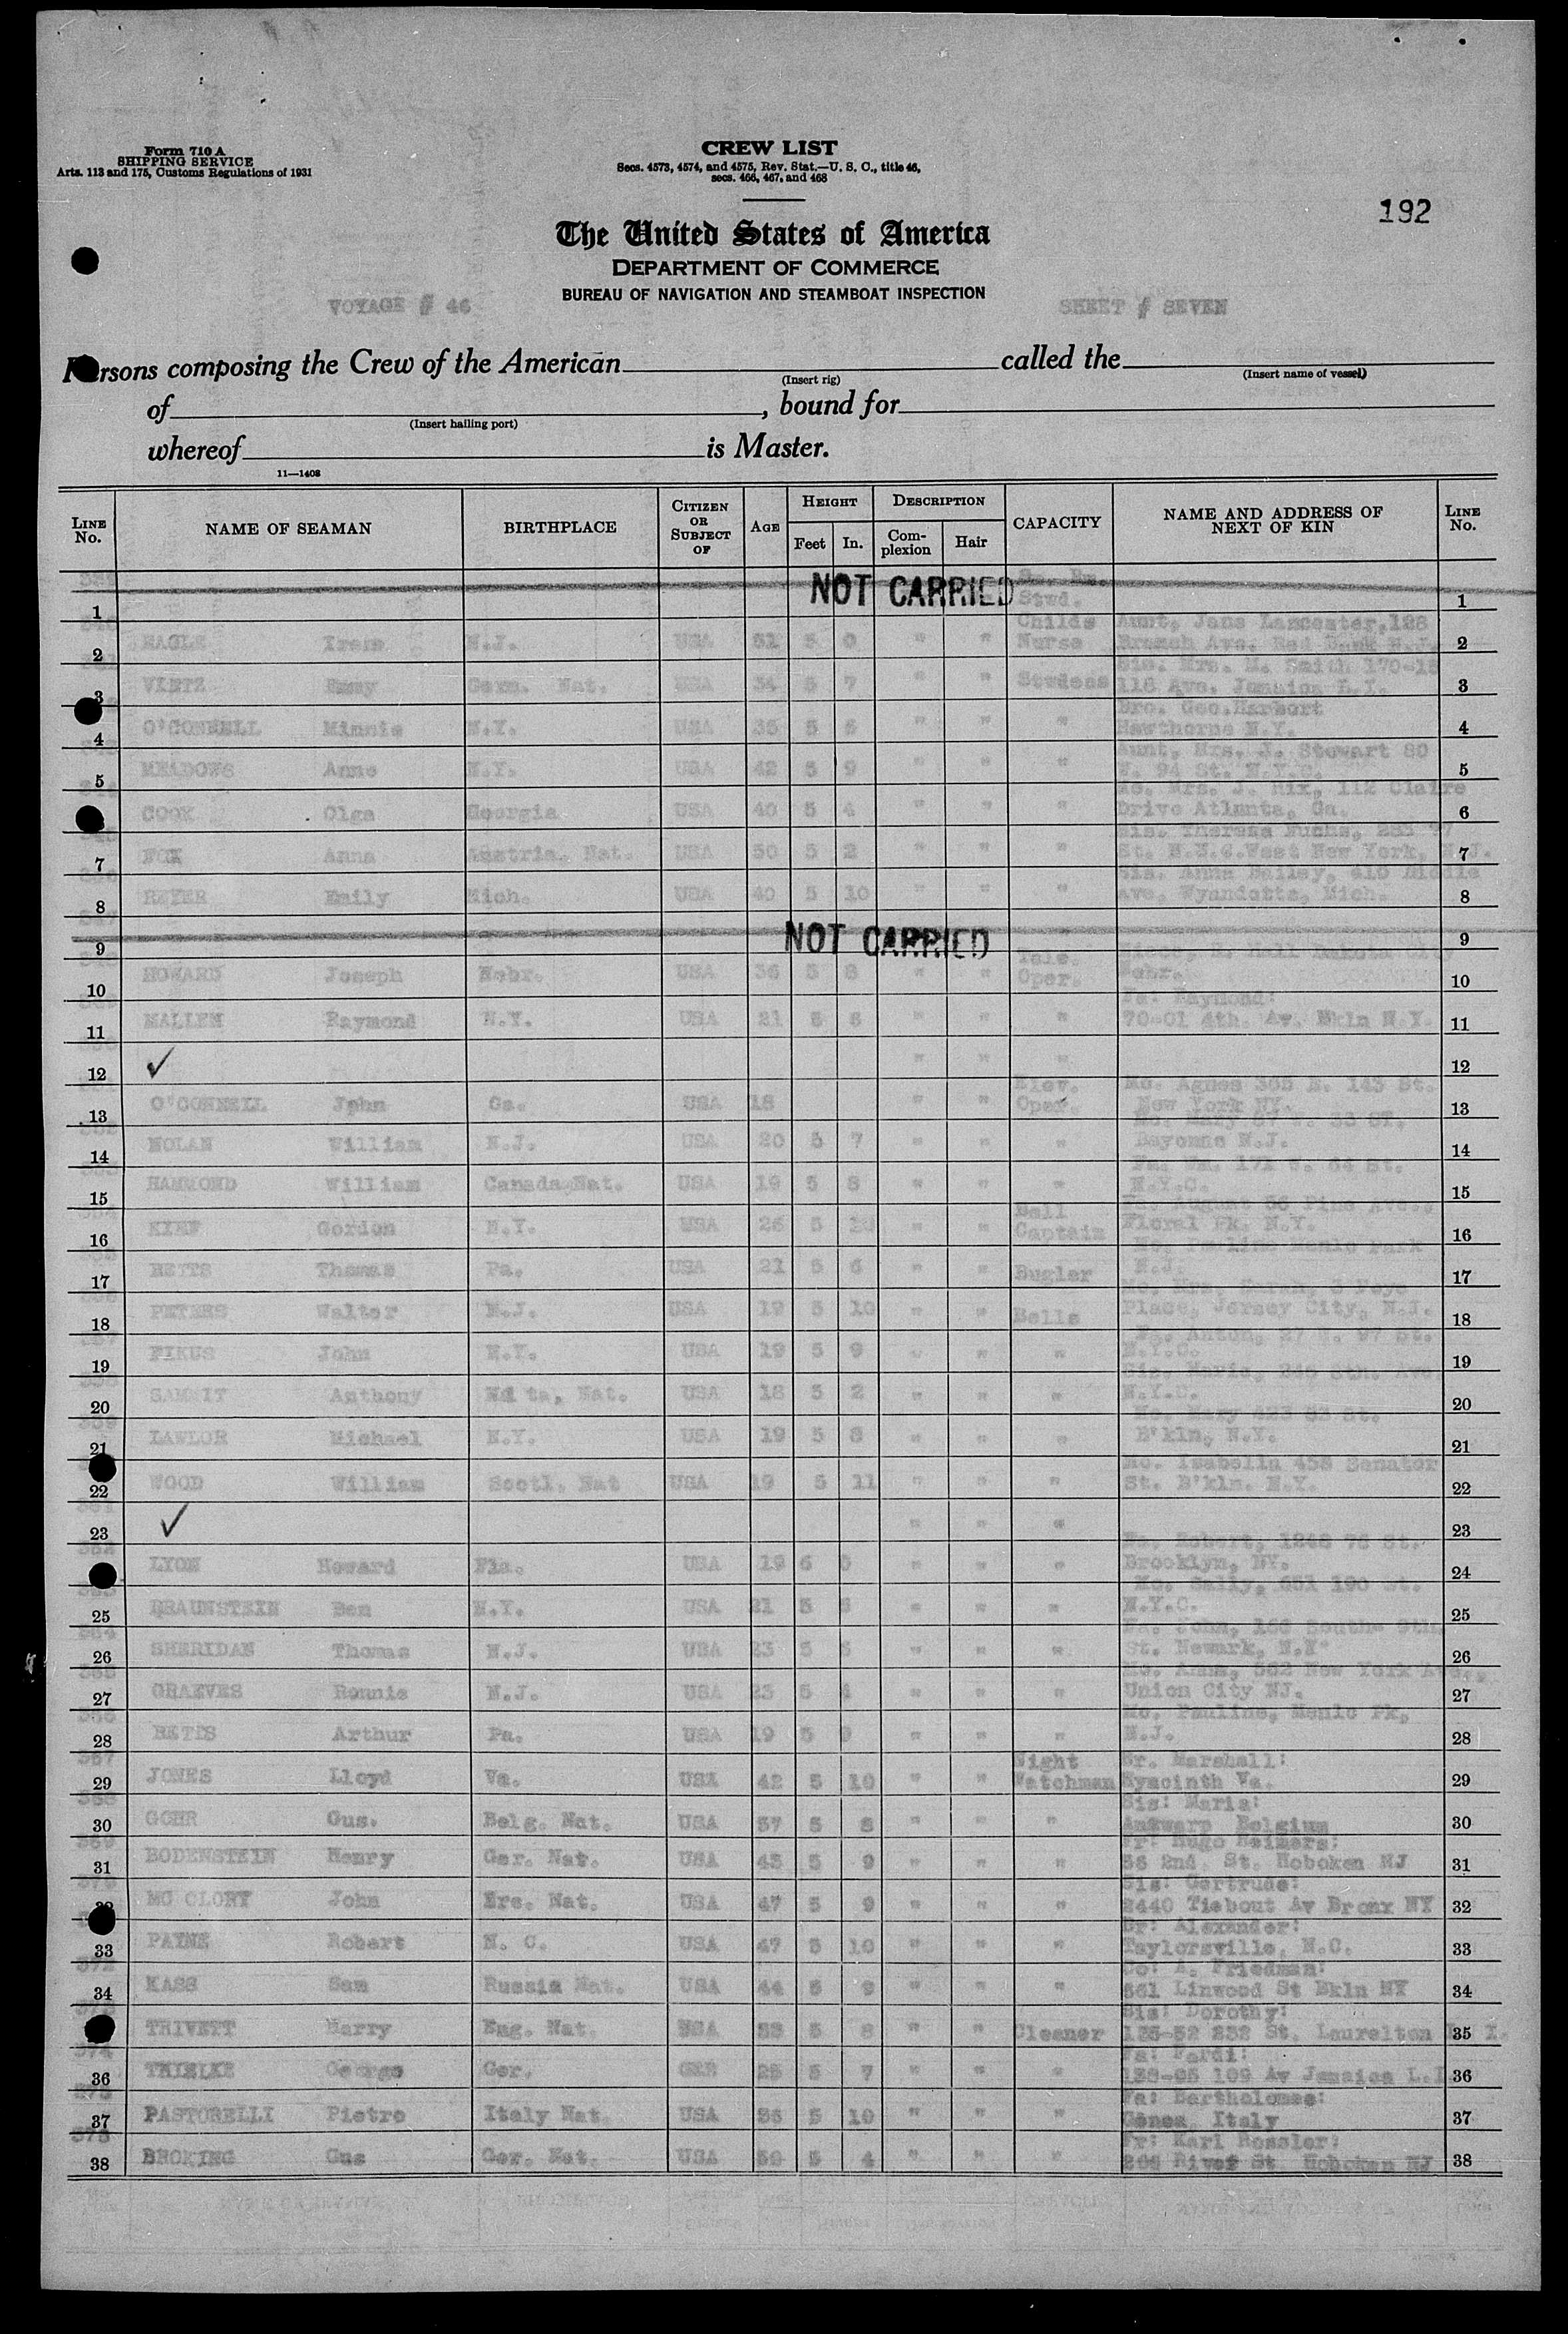 Form 710 A
SHIPPING SERVICE
Arts. 113 and 175, Customs Regulations of 1931
CREW LIST
Secs. 4573, 4574, and 4575, Rev. Stat.—U. S. C., title 46,
secs. 466, 467, and 468
192
The United States of America
DEPARTMENT OF COMMERCE
BUREAU OF NAVIGATION AND STEAMBOAT INSPECTION
VOYAGE # 46
SHEET # SEVEN
Persons composing the Crew of the American called the
(Insert rig) (Insert name of vessel)
of , bound for
(Insert hailing port)
whereof is Master.
11—1408
LINE No. NAME OF SEAMAN BIRTHPLACE CITIZEN OR SUBJECT OF AGE HEIGHT Feet In. DESCRIPTION Complexion Hair CAPACITY NAME AND ADDRESS OF NEXT OF KIN LINE No.
1 NOT CARRIED Stwd. 1
2 NAGLE Irene N.J. USA 51 5 0 " " Childs Nurse Aunt, Jane Lancaster, 128 Branch Ave. Red Bank N.J. 2
3 Emmy Germ. Nat. USA 34 5 7 " " Stwdess Sis. Mrs. M. Smith 170-18 118 Ave. Jamaica L.I. 3
4 O'CONNELL Minnie N.Y. USA 35 5 " " " Bro. Geo. Herbert Hawthorne N.Y. 4
5 MEADOWS Anne N.Y. USA 42 5 9 " " " Aunt, Mrs. J. Stewart 80 W. 94 St. N.Y.C. 5
6 COOK Olga Georgia USA 40 5 4 " " " Mo. Mrs. J. Hix, 112 Claire Drive Atlanta, Ga. 6
7 FOX Anna Austria. Nat. USA 50 5 2 " " " Sis. Theresa Fuchs, St. West New York, N.J. 7
8 Emily Mich. USA 40 5 10 " " " Sis. Anna Bailey, Ave. Wyandotte, Mich. 8
9 NOT CARRIED " 9
10 HOWARD Joseph Nebr. USA 36 5 8 " " Tele. Oper. Niece, Hall Dakota City Nebr. 10
11 Raymond N.Y. USA 21 5 " " " Fa: Raymond: 70-01 4th. Av. Bkln N.Y. 11
12 ✓ " " " 12
13 O'CONNELL John Ga. USA 18 " " Elev. Oper. Mo. Agnes 365 E. 143 St. New York NY. 13
14 NOLAN William N.J. USA 20 5 7 " " " Mo. Mary Bayonne N.J. 14
15 HAMMOND William Canada, Nat. USA 19 5 8 " " " Fa. Wm. 171 64 St. N.Y.C. 15
16 Gordon N.Y. USA 26 5 10 " " Bell Captain August 56 Pine Ave., Floral Pk. N.Y. 16
17 BETTS Thomas Pa. USA 21 5 6 " " Bugler Mo. Pauline Menlo Park N.J. 17
18 PETERS Walter N.J. USA 19 5 10 " " Bells Mo. Mrs. Sarah, Place, Jersey City, N.J. 18
19 FIKUS John N.Y. USA 19 5 9 " " " Fa. Anton, 27 97 St. N.Y.C. 19
20 SAMMIT Anthony Malta, Nat. USA 18 5 2 " " " Sis. Marie, 8th. Ave. N.Y.C. 20
21 LAWLOR Michael N.Y. USA 19 5 8 " " " Mo. Mary 423 St. B'kln, N.Y. 21
22 WOOD William Scotl. Nat USA 19 5 11 " " " Mo. Isabella 458 Senator St. B'kln. N.Y. 22
23 ✓ " " " 23
24 LYON Howard Fla. USA 19 6 0 " " Fa. Robert, 1248 76 St. Brooklyn, NY. 24
25 BRAUNSTEIN Ben N.Y. USA 21 5 " " " Mo. Sally, 651 190 St. N.Y.C. 25
26 SHERIDAN Thomas N.J. USA 23 5 " " " Fa. John, South 9th. St. Newark, 26
27 GRAEVES Ronnie N.J. USA 23 5 4 " " " Mo. Anna, 562 New York Ave., Union City NJ. 27
28 BETTS Arthur Pa. USA 19 5 9 " " " Mo. Pauline, Menlo Pk, N.J. 28
29 JONES Lloyd Va. USA 42 5 10 " " Night Watchman Br. Marshall: Hyacinth Va. 29
30 GOHR Gus. Belg. Nat. USA 57 5 8 " " " Sis: Maria: Antwerp Belgium 30
31 BODENSTEIN Henry Ger. Nat. USA 45 5 9 " " " Fr: Hugo Reimers: 56 2nd. St. Hoboken NJ 31
32 MC CLORY John Ire. Nat. USA 47 5 9 " " " Sis: Gertrude: 2440 Tiebout Av Bronx NY 32
33 PAYNE Robert N. C. USA 47 5 10 " " " Br: Alexander: Taylorsville, N.C. 33
34 KASS Sam Russia Nat. USA 44 5 9 " " " Co: A. Friedman: 561 Linwood St Bkln NY 34
35 TRIVETT Harry Eng. Nat. USA 5 8 " " Cleaner Sis: Dorothy: 135-52 232 St. Laurelton L. I. 35
36 THIELKE George Ger. GER 25 5 7 " " " Fa: Ferdi: 109 Av Jamaica L.I. 36
37 PASTORELLI Pietro Italy Nat. USA 36 5 10 " " " Fa: Bartholomeo: Genoa, Italy 37
38 BROKING Gus Ger. Nat. USA 5 4 " " " Fr: Karl Rossler: River St Hoboken NJ 38